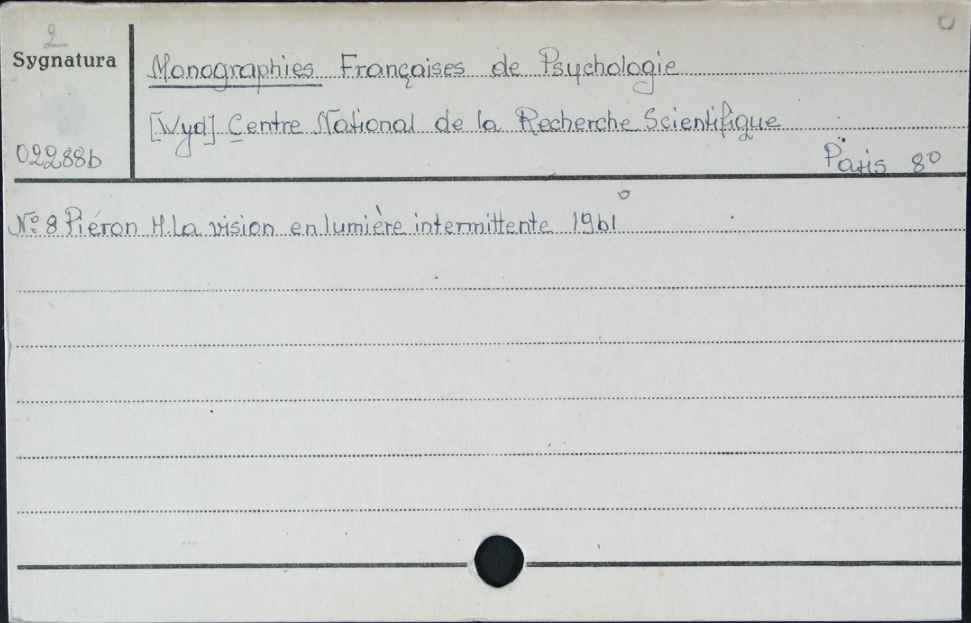 2
Sygnatura
Monographies Françaises de Psychologie
[Wyd] Centre National de la Recherche Scientifique
022886
Paris 8°
Nº 8 Piéron H. La vision en lumière intermittente 1961